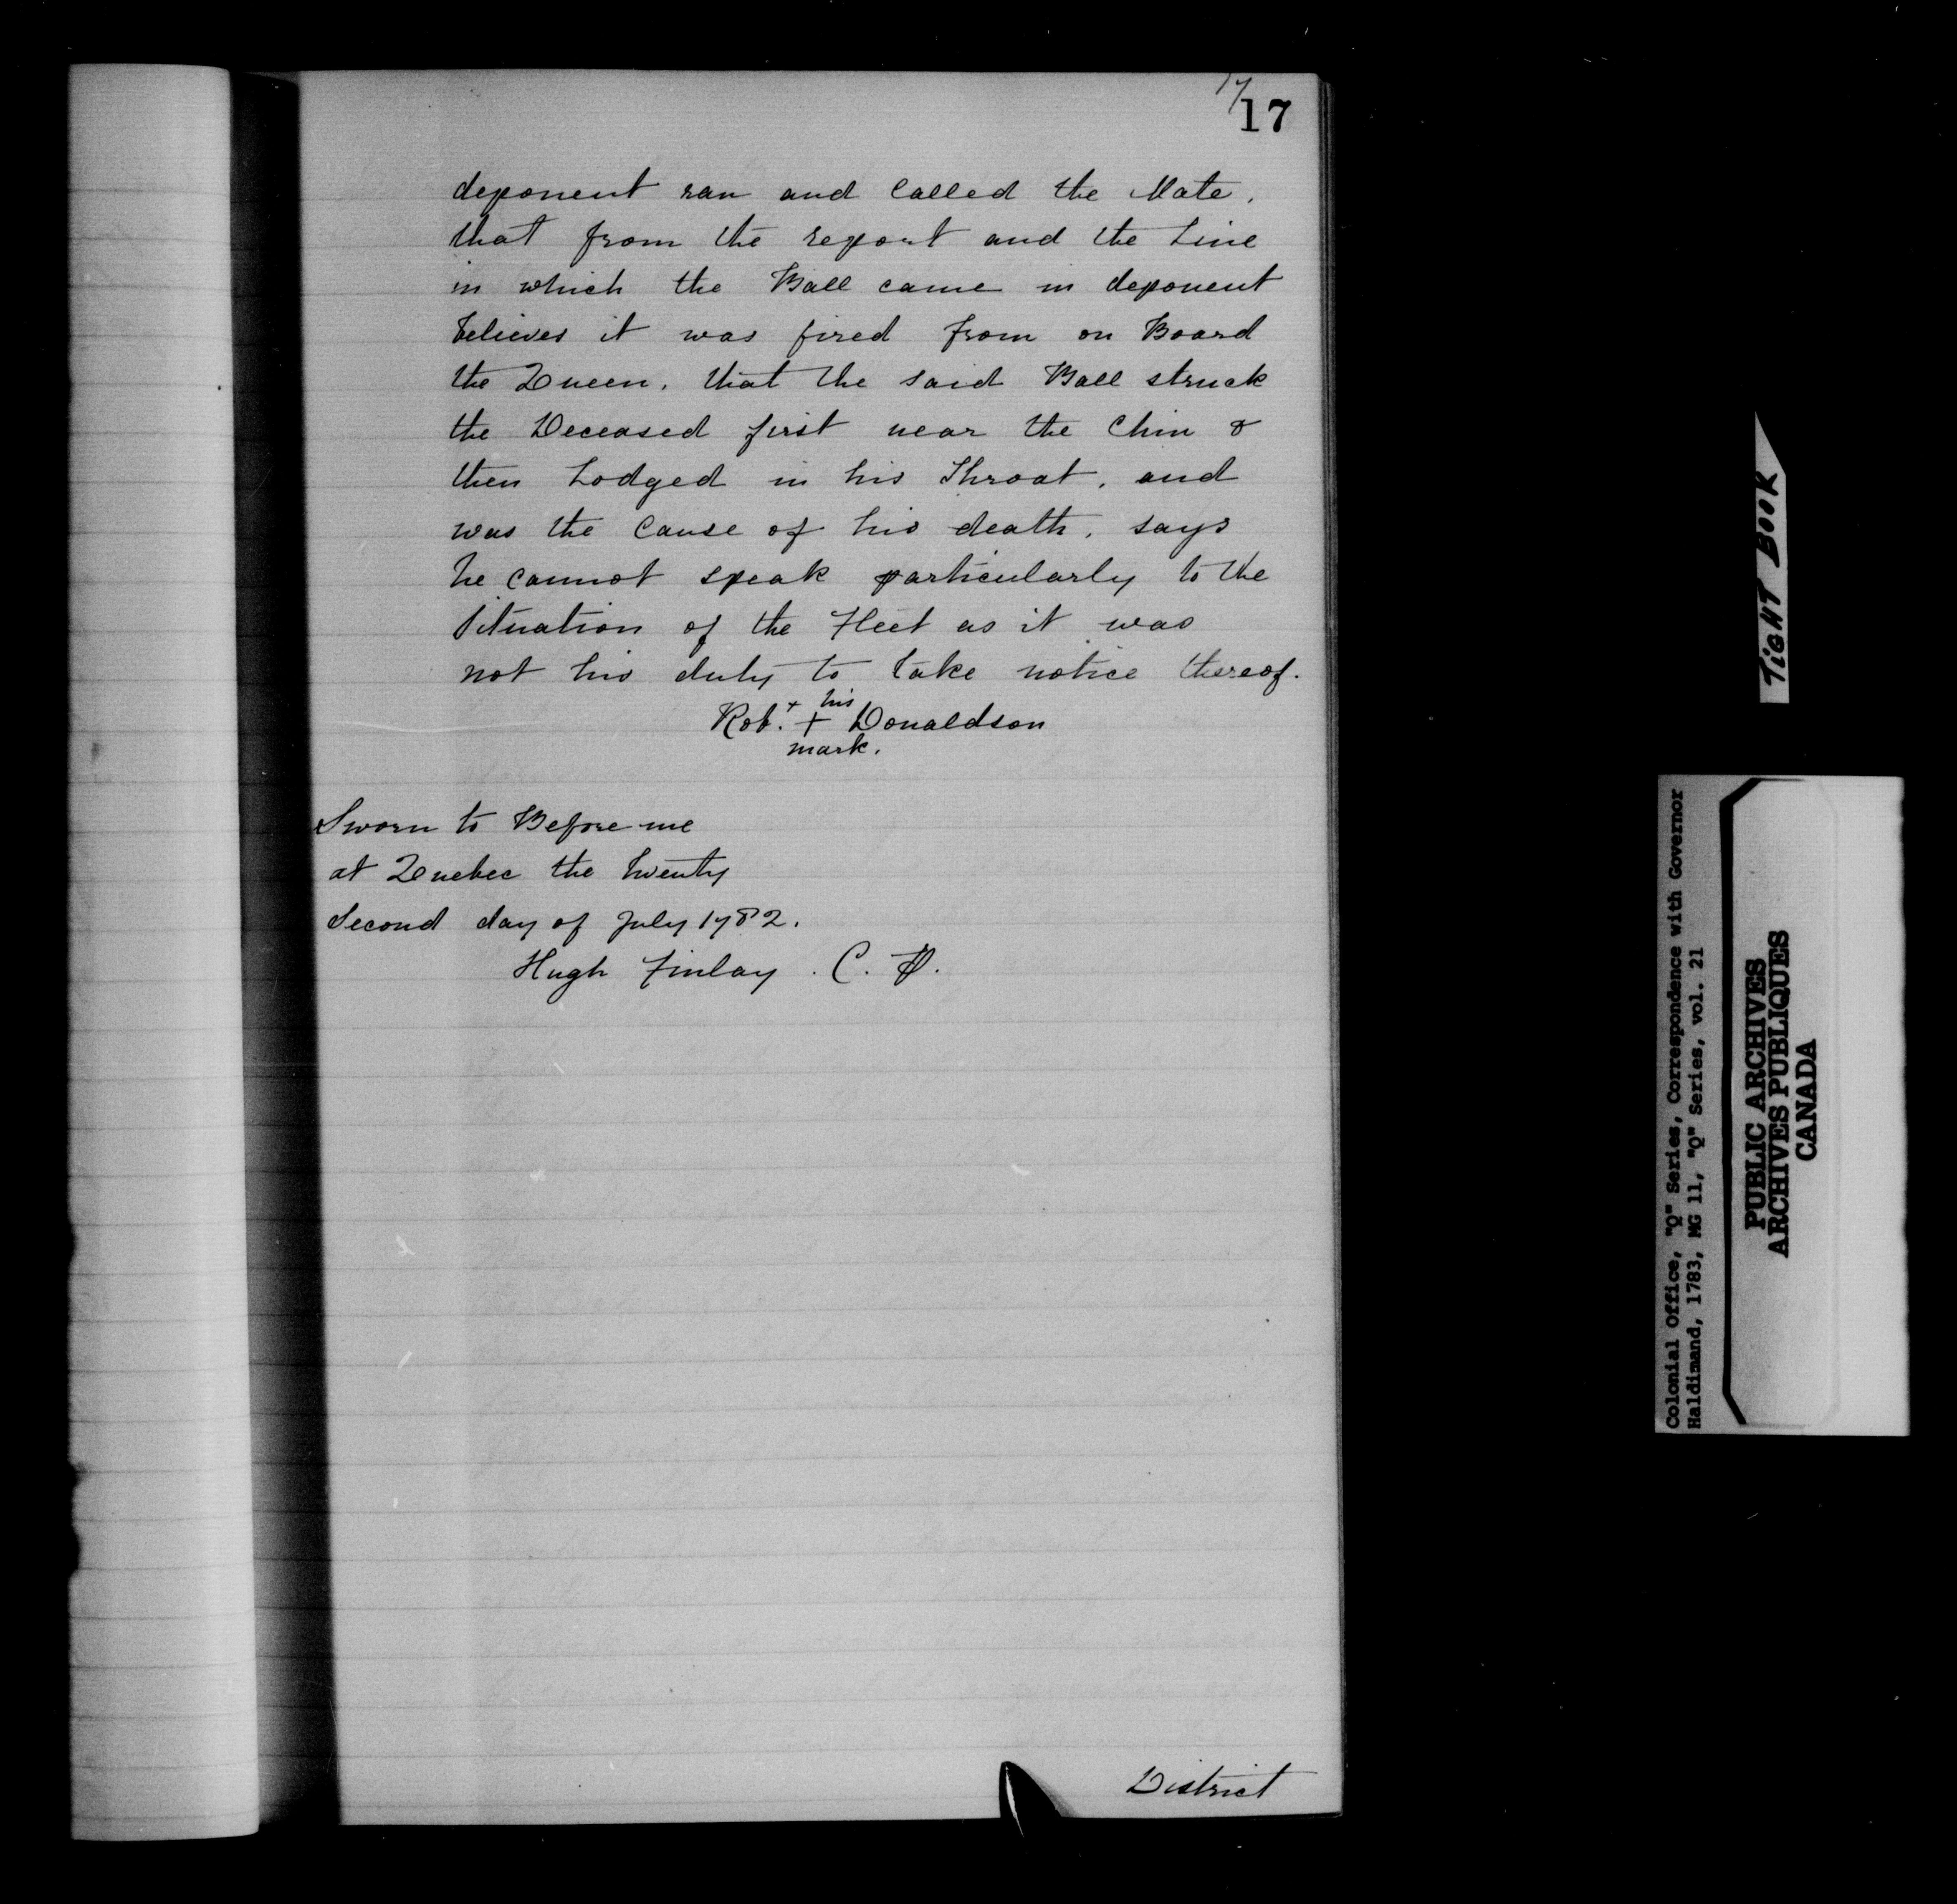 17
17
deponent ran and called the Mate,
that from the report and the Line
in which the Ball came in deponent
believes it was fired from on Board
the Queen, that the said Ball struck
the Deceased first near the Chin &
then Lodged in his Throat, and
was the Cause of his death, says
he cannot speak particularly to the
Situation of the Fleet as it was
not his duty to take notice thereof.
his
Rob.t + Donaldson
mark.
Sworn to Before me
at Quebec the twenty
Second day of July 1782.
Hugh Finlay . C. P.
District
TIGHT BOOK
Colonial Office, "Q" Series, Correspondence with Governor
Haldimand, 1783, MG 11, "Q" Series, vol. 21
PUBLIC ARCHIVES
ARCHIVES PUBLIQUES
CANADA